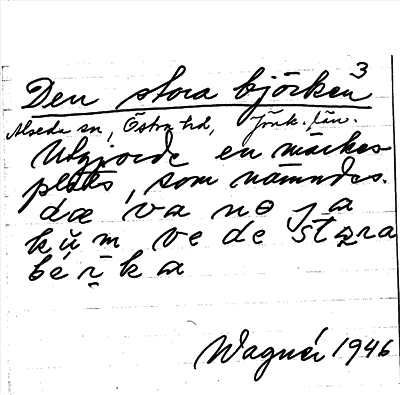 3
Den stora björken
Alseda sn, Östra hd, Jönk. län.
Utgjorde en märkes-
plats, som nämndes.
dæ va nɵ ȷa
kŭm ve de sta̧ra
bé r̆ k a
Wagnér 1946